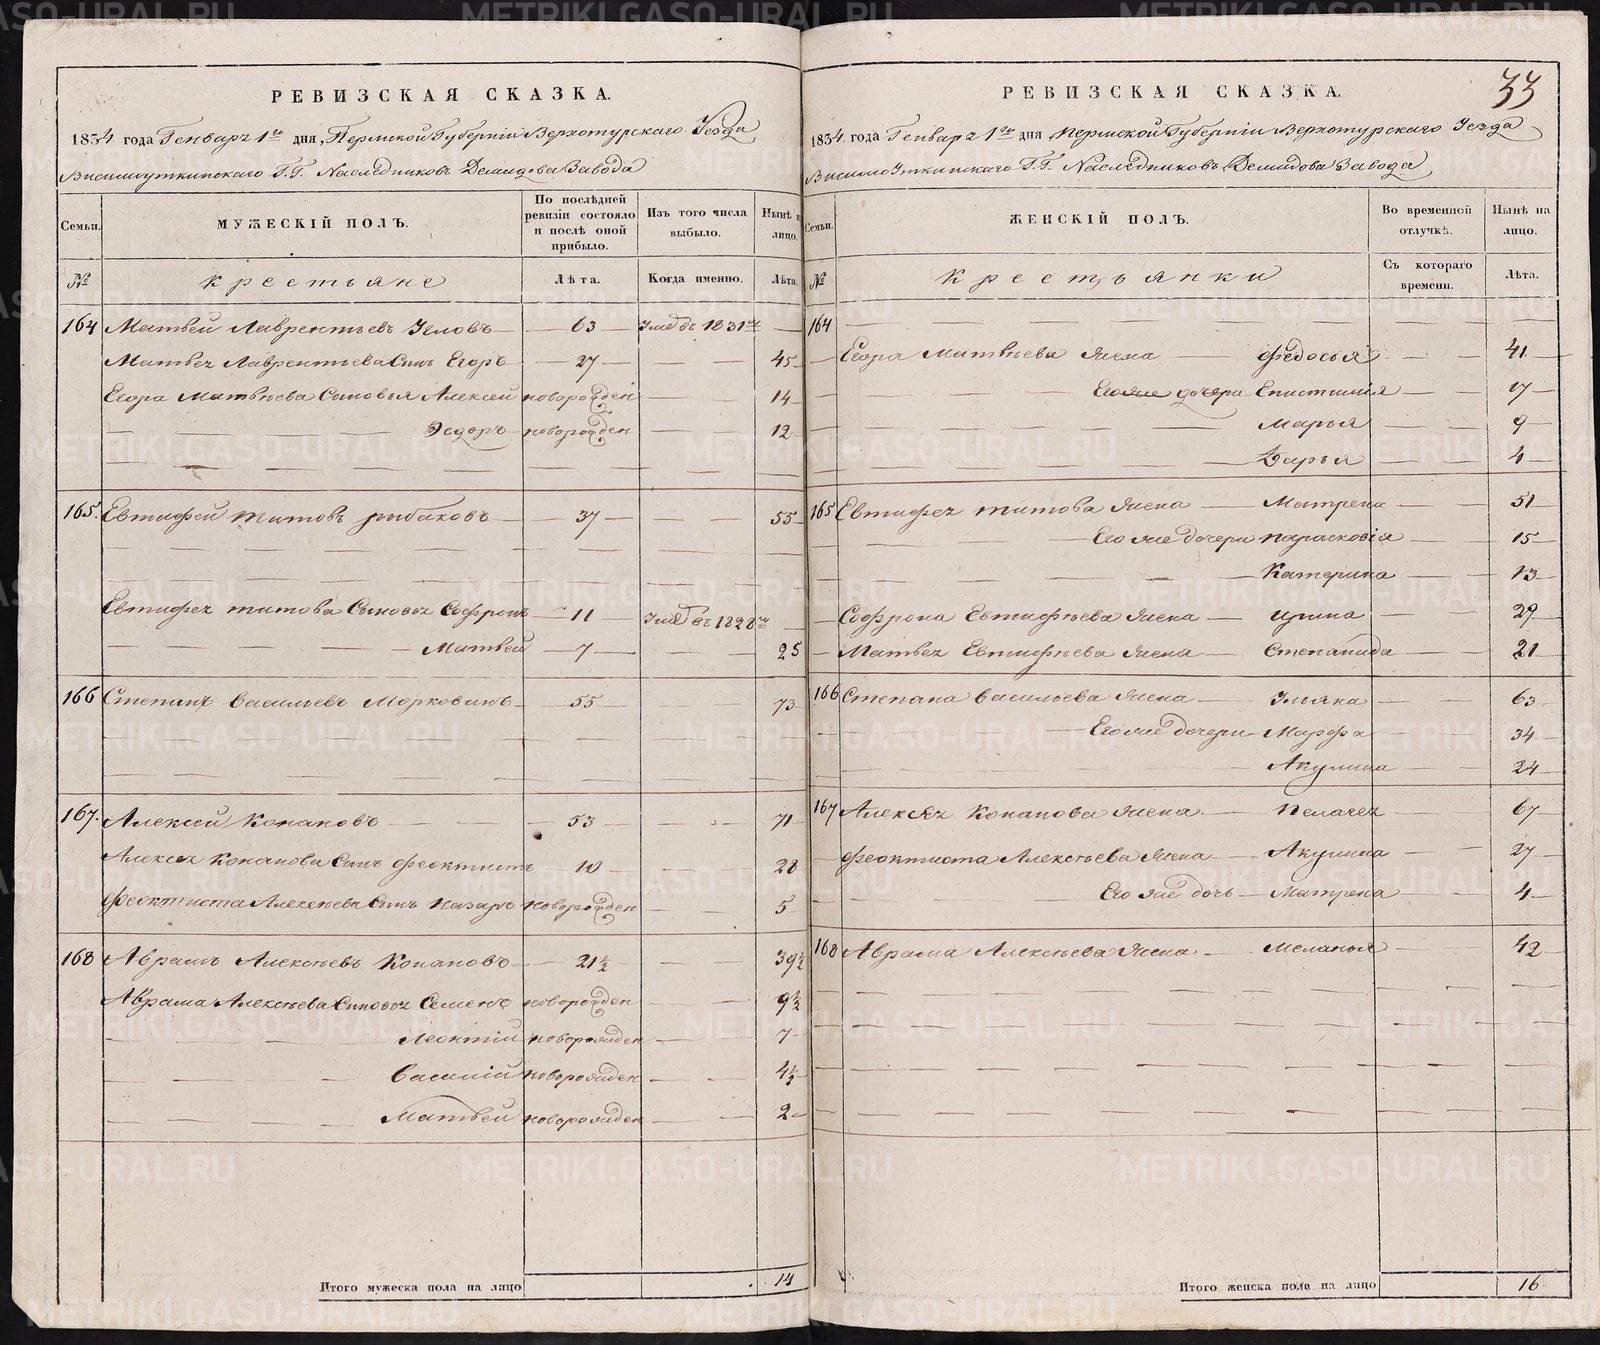 РЕВИЗСКАЯ СКАЗКА.
1834 года Генваря 1го дня, Пермской Губерніи Верхотурскаго Уезда
Висимоуткинскаго Г.Г. Наследниковъ Демидова Завода
Семьи.
МУЖЕСКІЙ ПОЛЪ.
По послѣдней ревизіи состояло и послѣ оной прибыло.
Изъ того числа выбыло.
Нынѣ на лицо.
№
крестьяне
Лѣта.
Когда именно.
Лѣта.
164 Матвей Лаврентьевъ 63 Умеръ въ 1831
Матвея Лаврентьева Сынъ Егоръ 27 45
Егора Матвѣева Сыновья Алексей новорожден 14
Федоръ новорожден 12
165. Евтифей Титовъ рыбаковъ 37 55
Евтифея Титова Сыновья Софронъ 11 Умеръ въ 1828
Матвей 7 25
166 Степанъ Васильевъ Морковинъ 55 73
167. Алексей Конаковъ 53 71
Алексея Конакова Сынъ Феоктистъ 10 28
Феоктиста Алексеева Сынъ Назаръ новорожден 5
168 Аврамъ Алексеевъ Конаковъ 21½ 39½
Аврама Алексеева Сыновья Семенъ новорожден 9½
Леонтій новорожден 7
Василій новорожден 4½
Матвей новорожден 2
Итого мужеска пола на лицо 14
33
РЕВИЗСКАЯ СКАЗКА.
1834 года Генваря 1го дня Пермской Губерніи Верхотурскаго Уезда
Висимоуткинскаго Г.Г. Наследниковъ Демидова Завода
Семьи.
ЖЕНСКІЙ ПОЛЪ.
Во временной отлучкѣ.
Нынѣ на лицо.
№
крестьянки
Съ котораго времени.
Лѣта.
164
Егора Матвѣева жена Федосья 41
Егоже дочери Епистимія 17
Марья 9
Дарья 4
165 Евтифея Титова жена Матрена 51
Его же дочери Парасковія 15
Катерина 13
Софрона Евтифѣева жена Ирина 29
Матвея Евтифѣева жена Степанида 21
166 Степана Васильева жена Ульяна 63
Его же дочери Марфа 34
Акулина 24
167 Алексея Конакова жена Пелагея 67
Феоктиста Алексѣева жена Акулина 27
Его же дочь Матрена 4
168 Аврама Алексѣева жена Меланья 42
Итого женска пола на лицо 16
METRIKI.GASO-URAL.RU